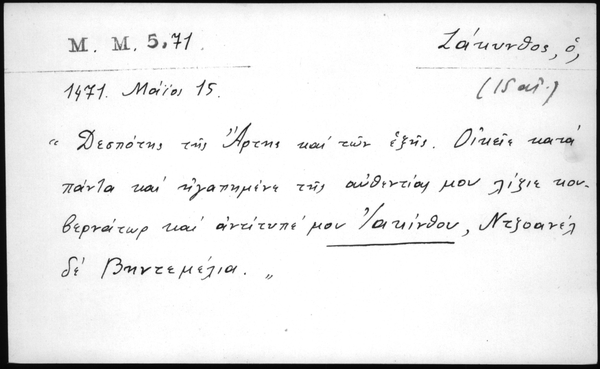 M. M. 5.71.
Ζάκυνθος, ὁ,
1471. Μάϊος 15.
(15 αἰ.)
“ Δεσπότης τῆς Ἄρτης καὶ τῶν ἑξῆς. Οἰκεῖε κατὰ
πάντα καὶ ἠγαπημένε τῆς αὐθεντίας μου λίζιε κου-
βερνάτωρ καὶ ἀντίτυπέ μου Ἰακίνθου, Ντζοανέλ
δέ Βηντεμέλια. „